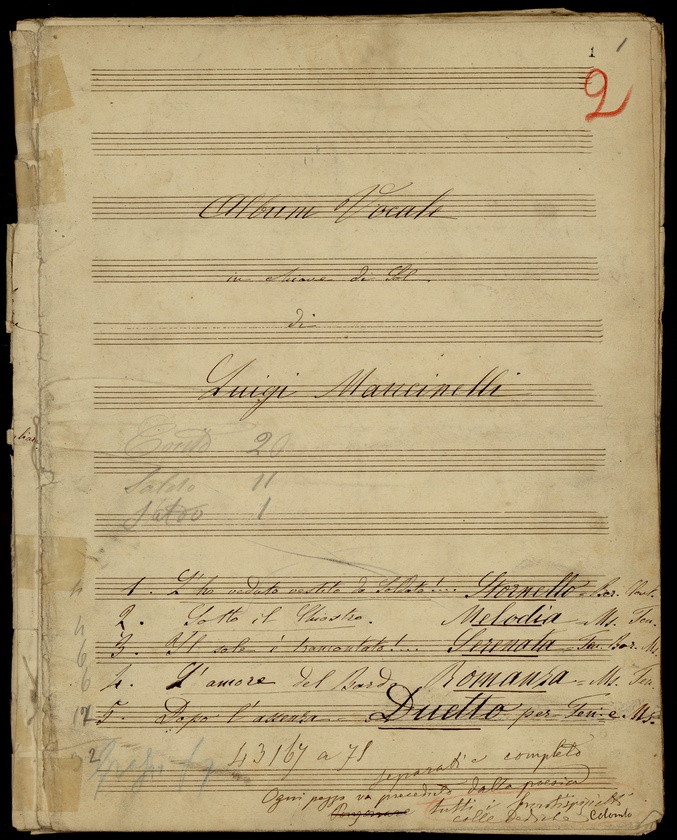 1
2
Album Vocale
in chiave di Sol.
di
Luigi Mancinelli
20
Saldo 11
1
4 1. L'ho veduto vestito da Soldato!... Stornello = Bar.
4 2. Sotto il Chiostro. Melodia = Ms. Ten.
6 3. Il sole è tramontato!... Serenata = Ten. Bar. Ms.
6 4. L'amore del Bardo Romanza = Ms. Ten.
12 5. Dopo l'assenza = Duetto per Ten: e Ms.
2
43167 a 71
separati e completo
Ogni pezzo va preceduto dalla poesia
tutti i frontispizietti
colle dediche Colombo